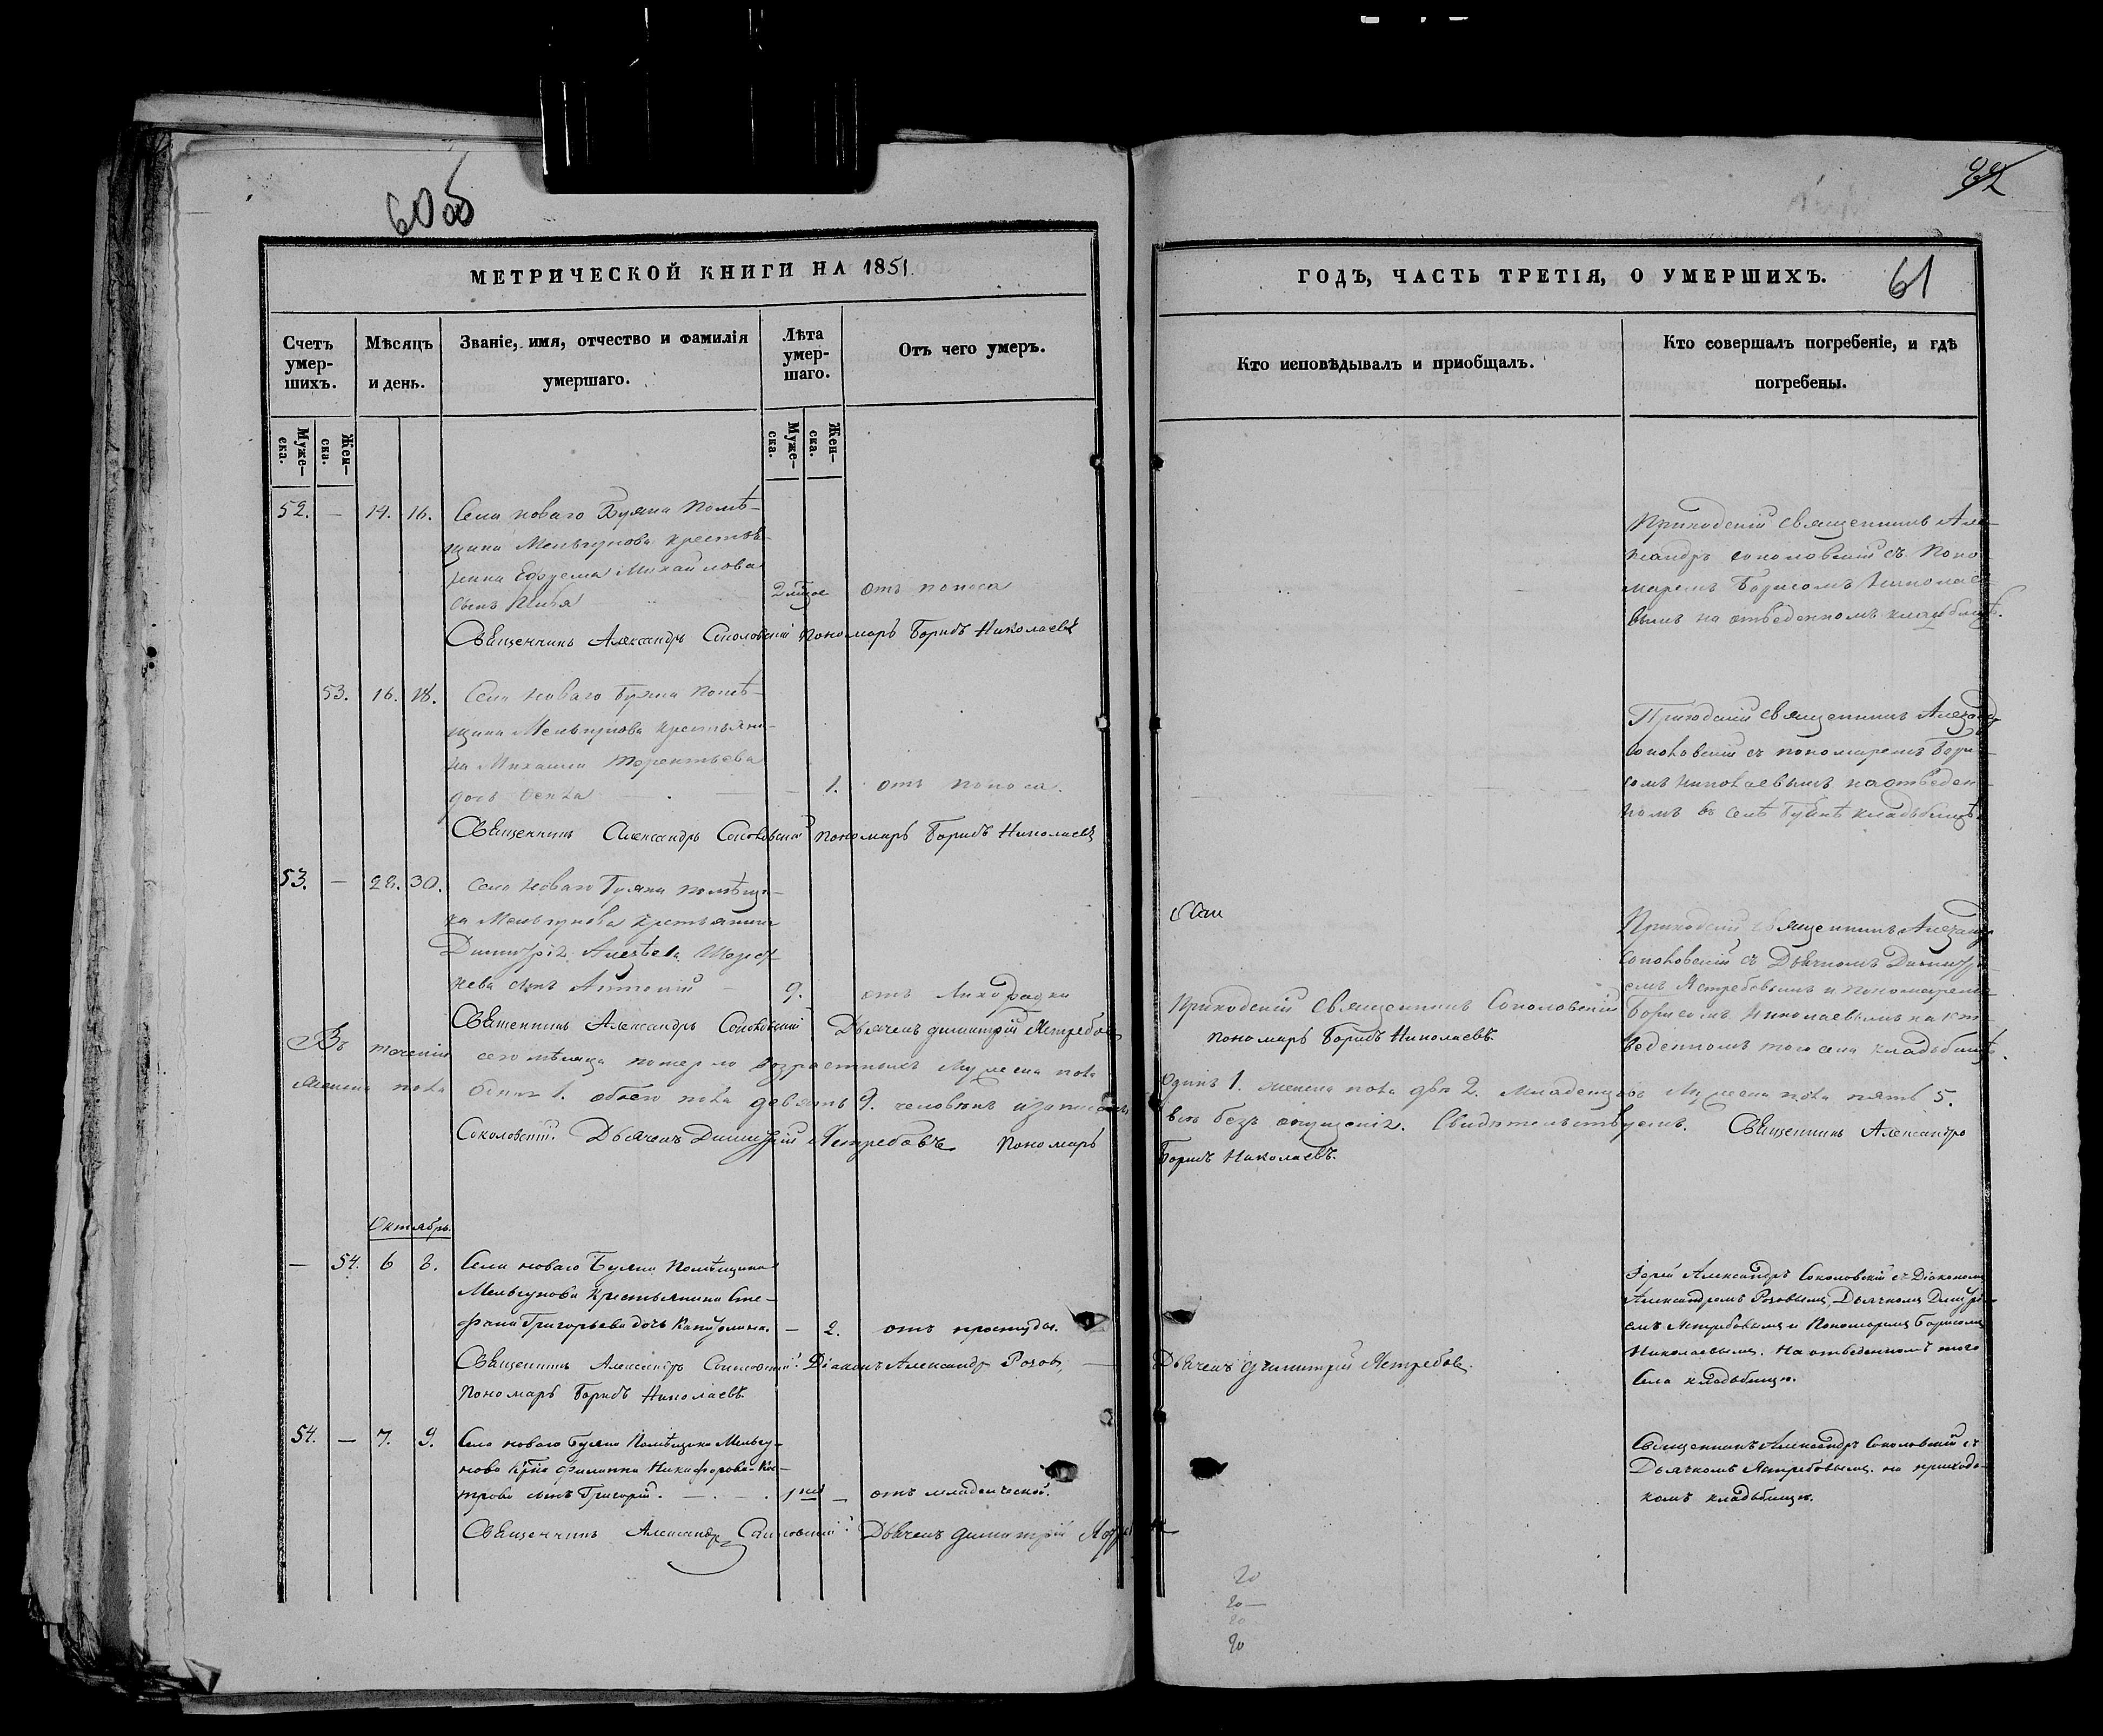 60об
62
МЕТРИЧЕСКОЙ КНИГИ НА 1851
ГОДЪ, ЧАСТЬ ТРЕТІЯ, О УМЕРШИХЪ.
61
Счетъ умер-шихъ.
Мѣсяцъ и день.
Званіе, имя, отчество и фамилія умершаго.
Лѣта умер-шаго.
Отъ чего умеръ.
Кто исповѣдывалъ и приобщалъ.
Кто совершалъ погребеніе, и гдѣ погребены.
Муже-ска.
Жен-ска.
Муже-ска.
Жен-ска.
52. — 14. 16. Села Новаго Буяна Помѣ-
щика Мельгунова крестья-
нина Ефрема Михайлова
сынъ Илья
отъ поноса
Священникъ Александръ Соколовскій Пономарь Борисъ Николаевъ
Приходскій священникъ Але-
ксандръ Соколовскій съ Поно-
маремъ Борисомъ Николае-
вымъ на отведенномъ кладбищѣ.
53. 16. 18. Села Новаго Буяна Помѣ-
щика Мельгунова крестьяни-
на Михаила Терентьева
дочь — 1. отъ поноса.
Священникъ Александръ Соколовскій Пономарь Борисъ Николаевъ
Приходскій священникъ Александръ
Соколовскій съ пономаремъ Бори-
сомъ Николаевымъ на отведен-
номъ въ селѣ Буянѣ кладбищѣ.
53. — 28. 30. Села Новаго Буяна помѣщи-
ка Мельгунова крестьянина
Димитрія Алексѣева
сынъ Антоній — 9. отъ лихорадки
Священникъ Александръ Соколовскій Дьячекъ Димитрій Ястребовъ
Приходскій священникъ Соколовскій
Пономарь Борисъ Николаевъ.
Приходскій священникъ Александръ
Соколовскій съ Дьячкомъ Димитрі-
емъ Ястребовымъ и Пономаремъ
Борисомъ Николаевымъ на от-
веденномъ того села кладбищѣ.
Въ теченіи сего мѣсяца померло возрастныхъ мужеска пола
Одинъ 1. женска пола два 2. младенцовъ мужеска пола пять 5.
женска пола одна 1. обоего пола девять 9. человѣкъ и записаны
всѣ безъ опущенія. Свидѣтельствуемъ. Священникъ Александръ
Соколовскій. Дьячекъ Димитрій Ястребовъ Пономарь
Борисъ Николаевъ.
Октябрь.
— 54. 6 8. Села новаго Буяна Помѣщика
Мельгунова Крестьянина Сте-
фана Григорьева дочь Капитолина. — 2. отъ простуды.
Священникъ Александръ Соколовскій. Діаконъ Александръ Розовъ,
Дьячекъ Димитрій Ястребовъ.
Пономарь Борисъ Николаевъ.
Іерей Александръ Соколовскій съ Діакономъ
Александромъ Розовымъ, Дьячкомъ Димитрі-
емъ Ястребовымъ и Пономаремъ Борисомъ
Николаевымъ. На отведенномъ того
Села кладбищѣ.
54. — 7. 9. Села новаго Буяна Помѣщика Мельгу-
нова Филиппа Никифорова
сынъ Григорій. — отъ младенческой.
Священникъ Александръ Соколовскій. Дьячекъ Димитрій
Священникъ Александръ Соколовскій съ
Дьячкомъ Ястребовымъ. на приходс-
комъ кладбищѣ.
20
20 —
20
20